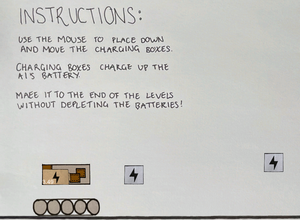 INSTRUCTIONS:
USE THE MOUSE TO PLACE DOWN
AND MOVE THE CHARGING BOXES.
CHARGING BOXES CHARGE UP THE
AI'S BATTERY
MAKE IT TO THE END OF THE LEVELS
WITHOUT DEPLETING THE BATTERIES!